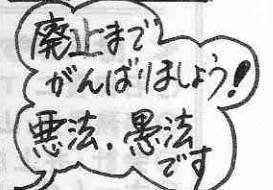 廃止まで
がんばりましょう!
悪法、愚法
です